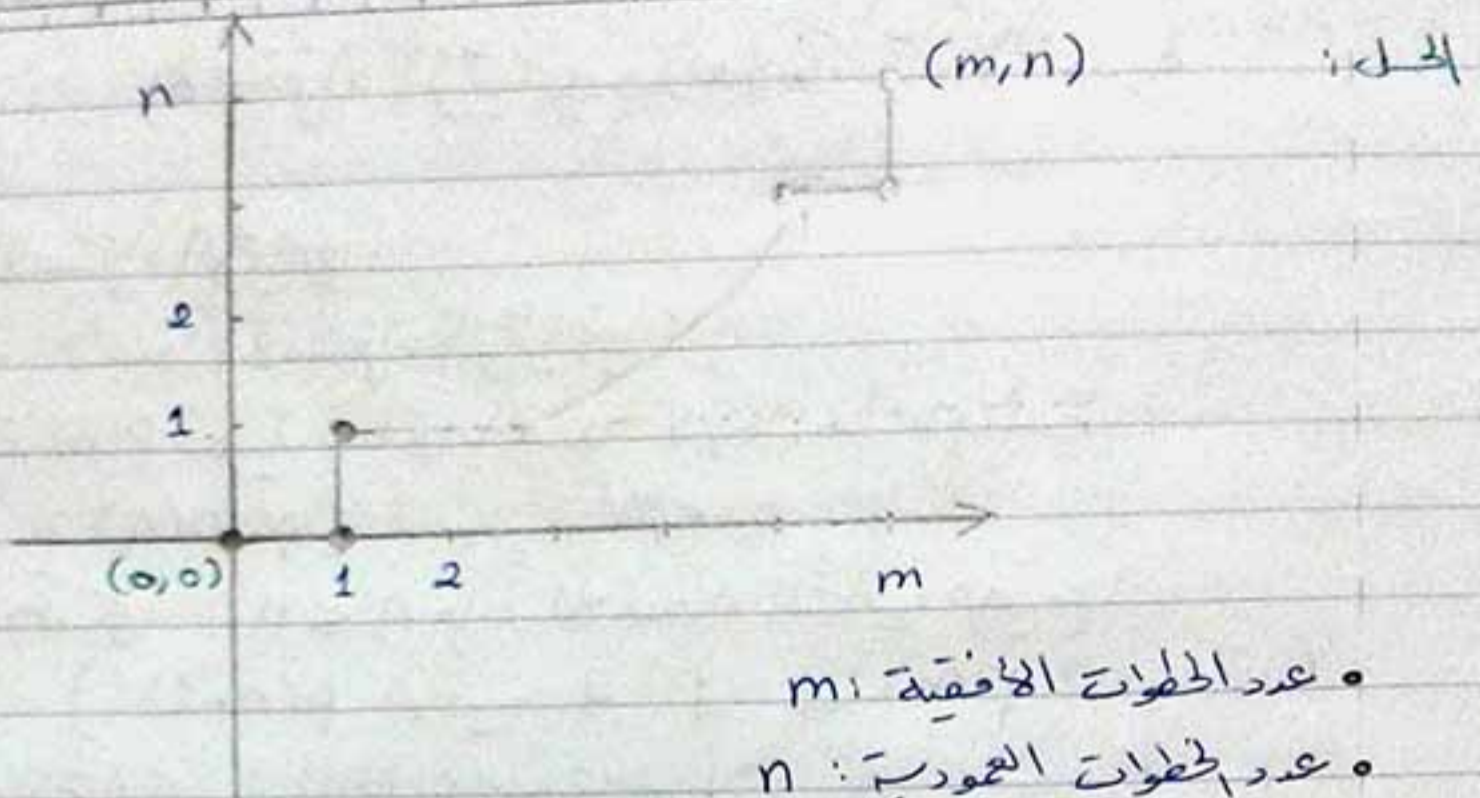 الحل:
(m,n)
n
2
1
(0,0) 1 2 m
• عدد الخطوات الأفقية: m
• عدد الخطوات العمودية: n